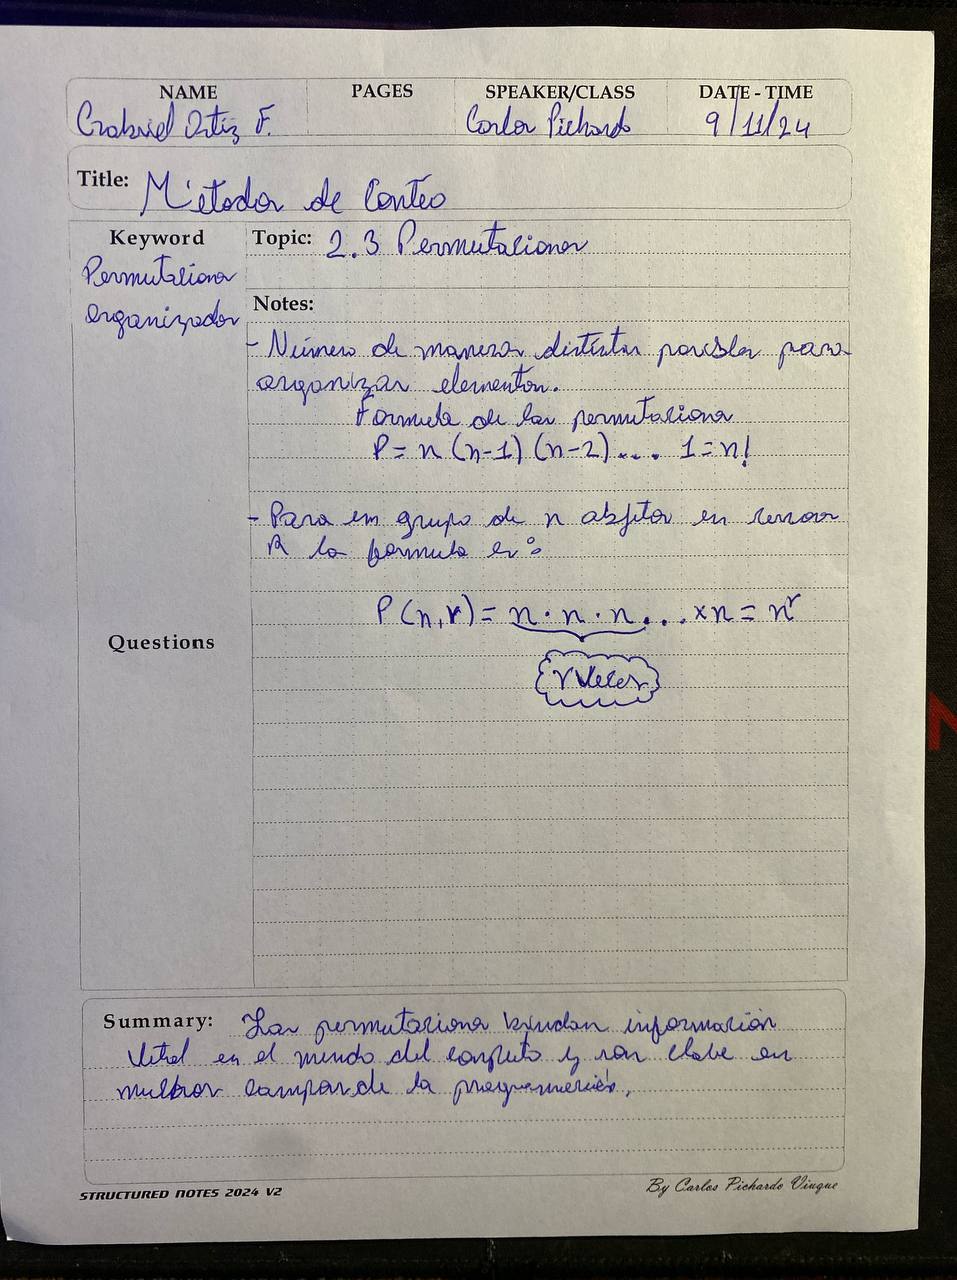 NAME PAGES SPEAKER/CLASS DATE - TIME
Gabriel Ortiz F. Carlos Pichardo 9/11/24
Title: Métodos de Conteo
Keyword
Permutaciones
organizador
Topic: 2.3 Permutaciones
Notes:
- Número de maneras distintas posibles para
organizar elementos.
Formula de las permutaciones
P = n (n-1) (n-2) .... 1 = n!
- Para un grupo de n objetos en
R la formula es:
P(n,r) = n · n · n ... × n = n^r
r veces
Questions
Summary: Las permutaciones brindan información
vital en el mundo del computo y son clave en
muchos campos de la programación.
STRUCTURED NOTES 2024 V2
By Carlos Pichardo Viuque